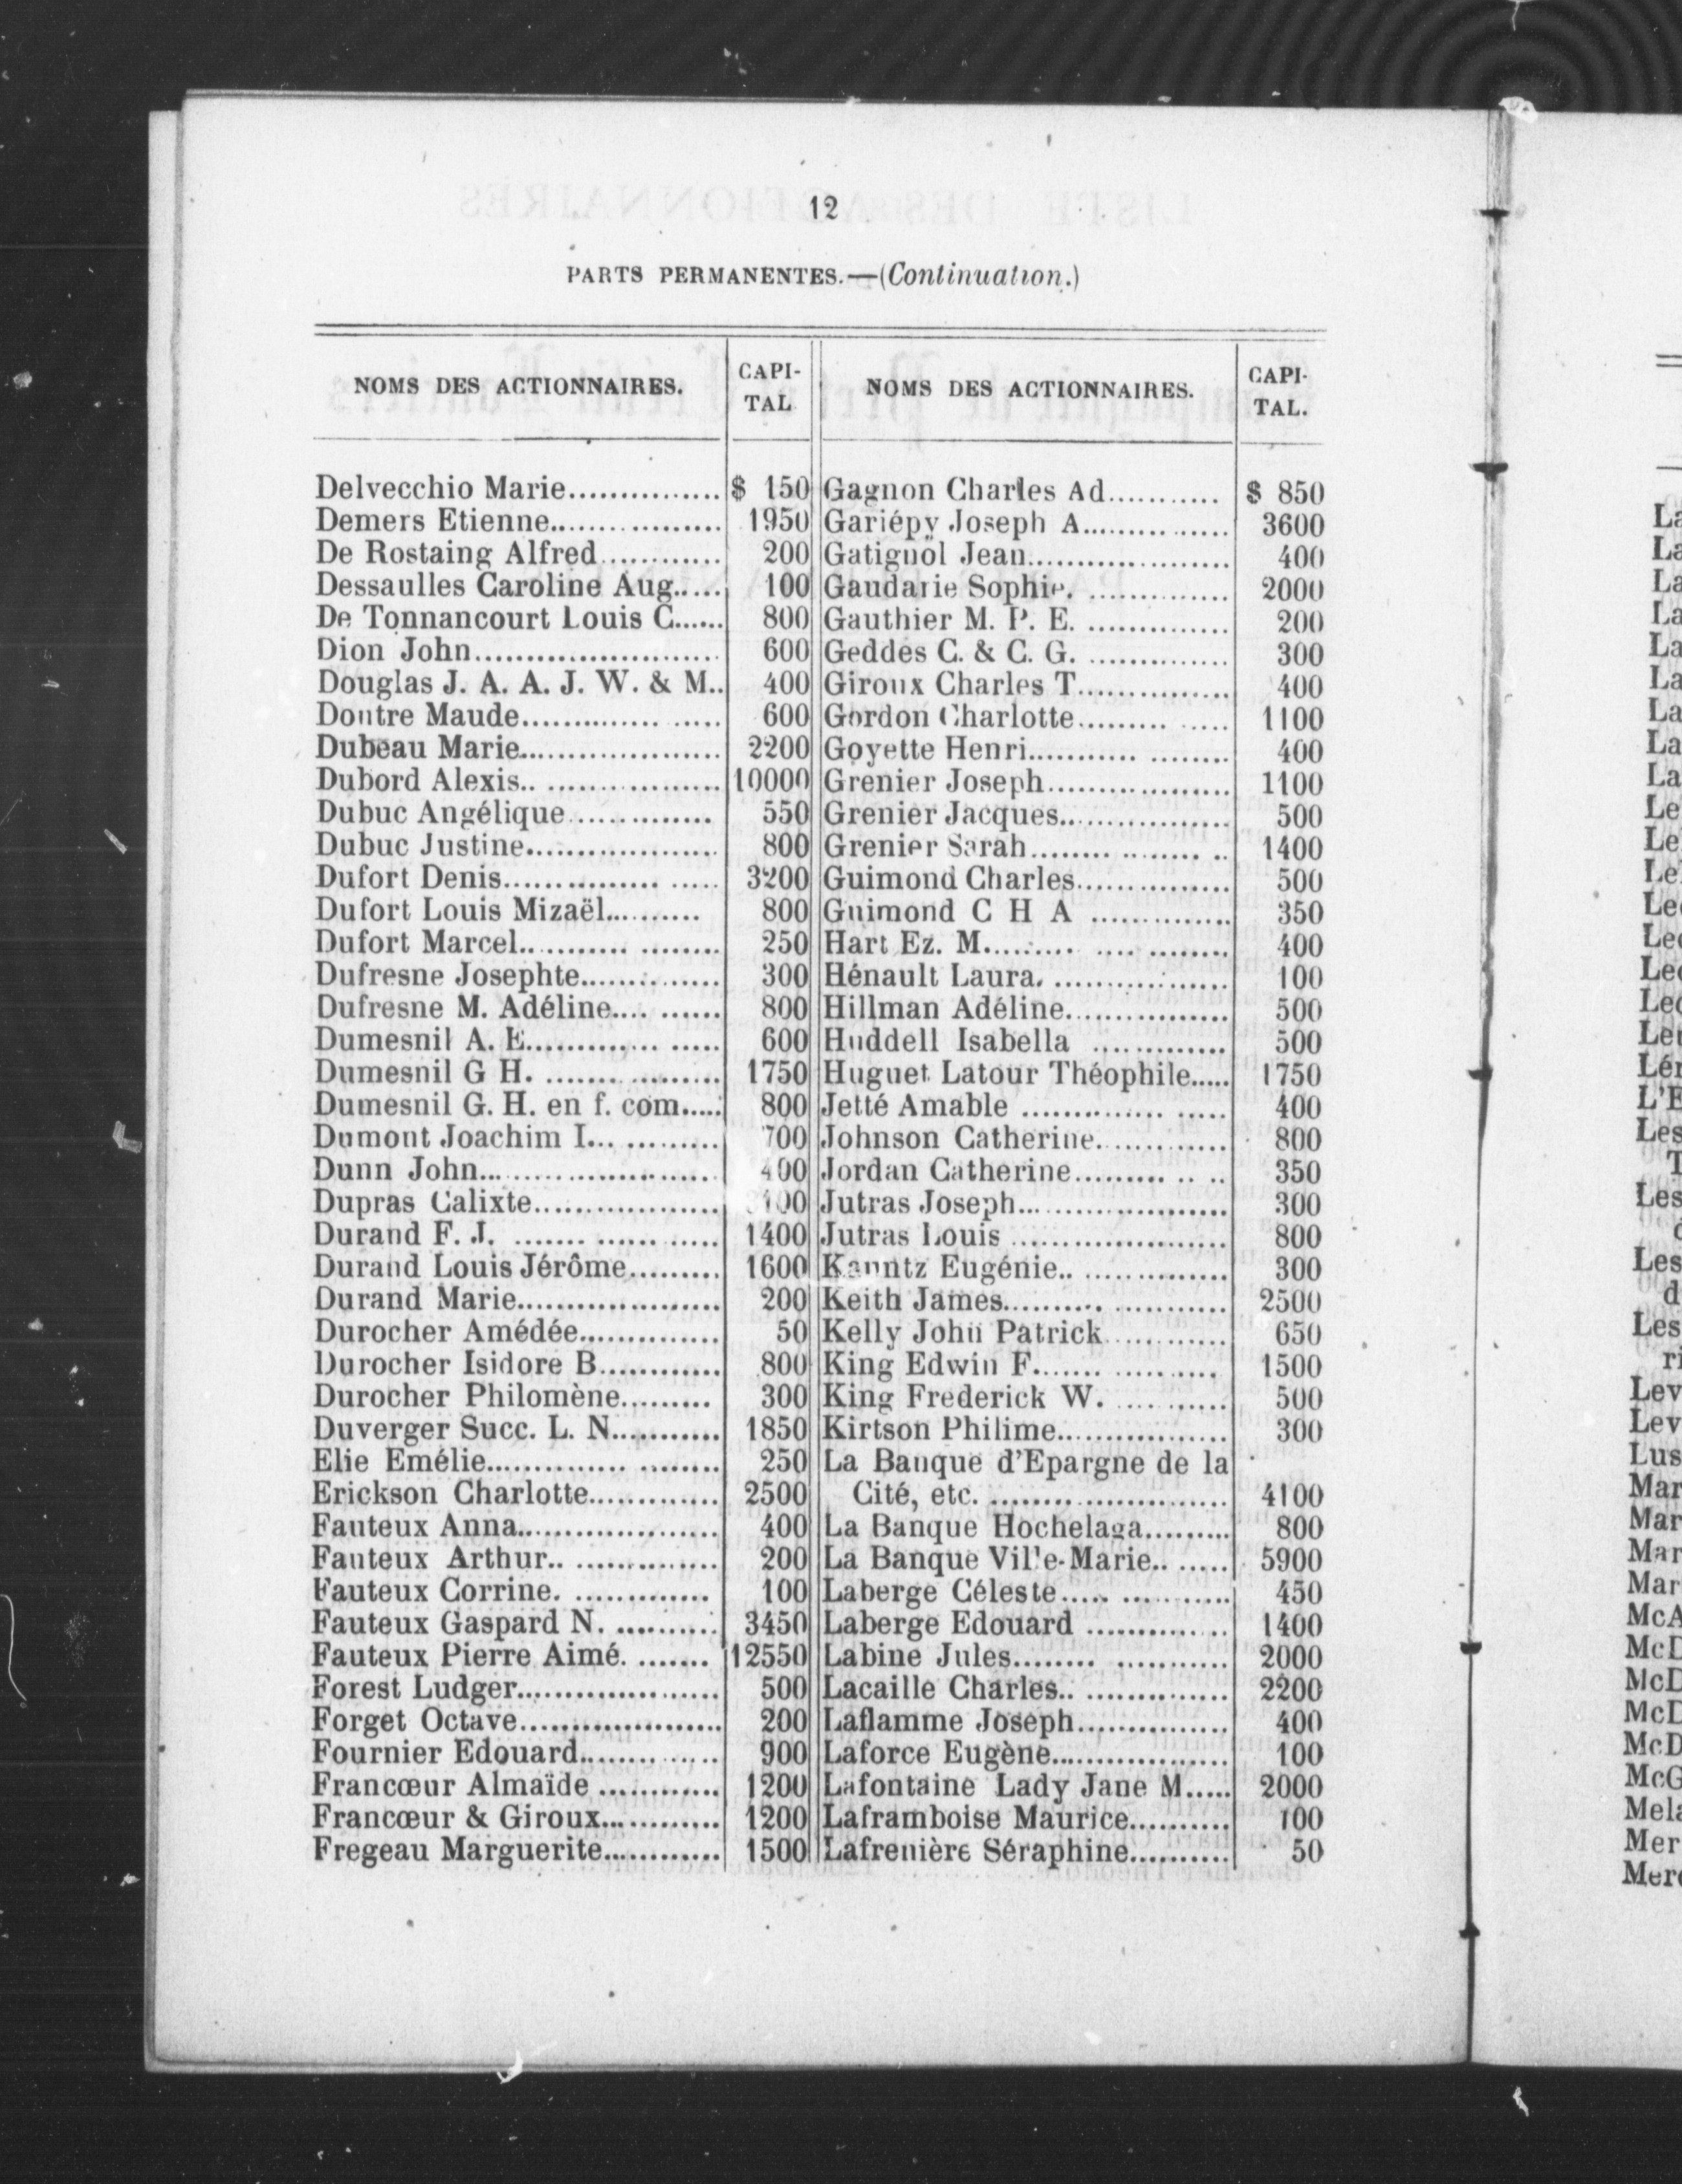 12
PARTS PERMANENTES.—(Continuation.)
NOMS DES ACTIONNAIRES.
CAPI-
TAL
Delvecchio Marie............... $ 150
Demers Etienne................. 1950
De Rostaing Alfred............ 200
Dessaulles Caroline Aug..... 100
De Tonnancourt Louis C...... 800
Dion John........................ 600
Douglas J. A. A. J. W. & M.. 400
Doutre Maude................... 600
Dubeau Marie..................... 2200
Dubord Alexis.. ................. 10000
Dubuc Angélique.............. 550
Dubuc Justine................... 800
Dufort Denis............... ..... 3200
Dufort Louis Mizaël.......... 800
Dufort Marcel........... ........ 250
Dufresne Josephte.............. 300
Dufresne M. Adéline.... ...... 800
Dumesnil A. E............. ..... 600
Dumesnil G H. ................. 1750
Dumesnil G. H. en f. com..... 800
Dumont Joachim I... .......... 700
Dunn John....................... 400
Dupras Calixte..................
Durand F. J. ....... ...... ..... 1400
Durand Louis Jérôme......... 1600
Durand Marie.................... 200
Durocher Amédée.............. 50
Durocher Isidore B............ 800
Durocher Philomène......... 300
Duverger Succ. L. N........... 1850
Elie Emélie.............. ........ 250
Erickson Charlotte............. 2500
Fauteux Anna.................... 400
Fauteux Arthur.. .............. 200
Fauteux Corrine. ............. 100
Fauteux Gaspard N. .......... 3450
Fauteux Pierre Aimé. ....... 12550
Forest Ludger.................... 500
Forget Octave.................... 200
Fournier Edouard.............. 900
Francœur Almaïde ............ 1200
Francœur & Giroux............ 1200
Fregeau Marguerite............ 1500
NOMS DES ACTIONNAIRES.
CAPI-
TAL.
Gagnon Charles Ad........... $ 850
Gariépy Joseph A.............. 3600
Gatignöl Jean.................... 400
Gaudarie Sophie. .............. 2000
Gauthier M. P. E. .............. 200
Geddes C. & C. G. .............. 300
Giroux Charles T............... 400
Gordon Charlotte......... ..... 1100
Goyette Henri........... ........ 400
Grenier Joseph.................. 1100
Grenier Jacques................. 500
Grenier Sarah........ ........ .. 1400
Guimond Charles............... 500
Guimond C H A .............. 350
Hart Ez. M......... .... ........ 400
Hénault Laura. ................. 100
Hillman Adéline................ 500
Huddell Isabella ............. 500
Huguet Latour Théophile..... 1750
Jetté Amable .............. ..... 400
Johnson Catherine............. 800
Jordan Catherine......... .. .. 350
Jutras Joseph..................... 300
Jutras Louis ..................... 800
Kanntz Eugénie.. .............. 300
Keith James.......... ........... 2500
Kelly John Patrick............ 650
King Edwin F....... .......... 1500
King Frederick W. ........... 500
Kirtson Philime................. 300
La Banque d'Epargne de la
Cité, etc. ........................ 4100
La Banque Hochelaga......... 800
La Banque Ville-Marie.. ..... 5900
Laberge Céleste..... ........... 450
Laberge Edouard .............. 1400
Labine Jules........ ........... 2000
Lacaille Charles.. .............. 2200
Laflamme Joseph............... 400
Laforce Eugène.................. 100
Lafontaine Lady Jane M..... 2000
Laframboise Maurice.......... 100
Lafrenière Séraphine.......... 50